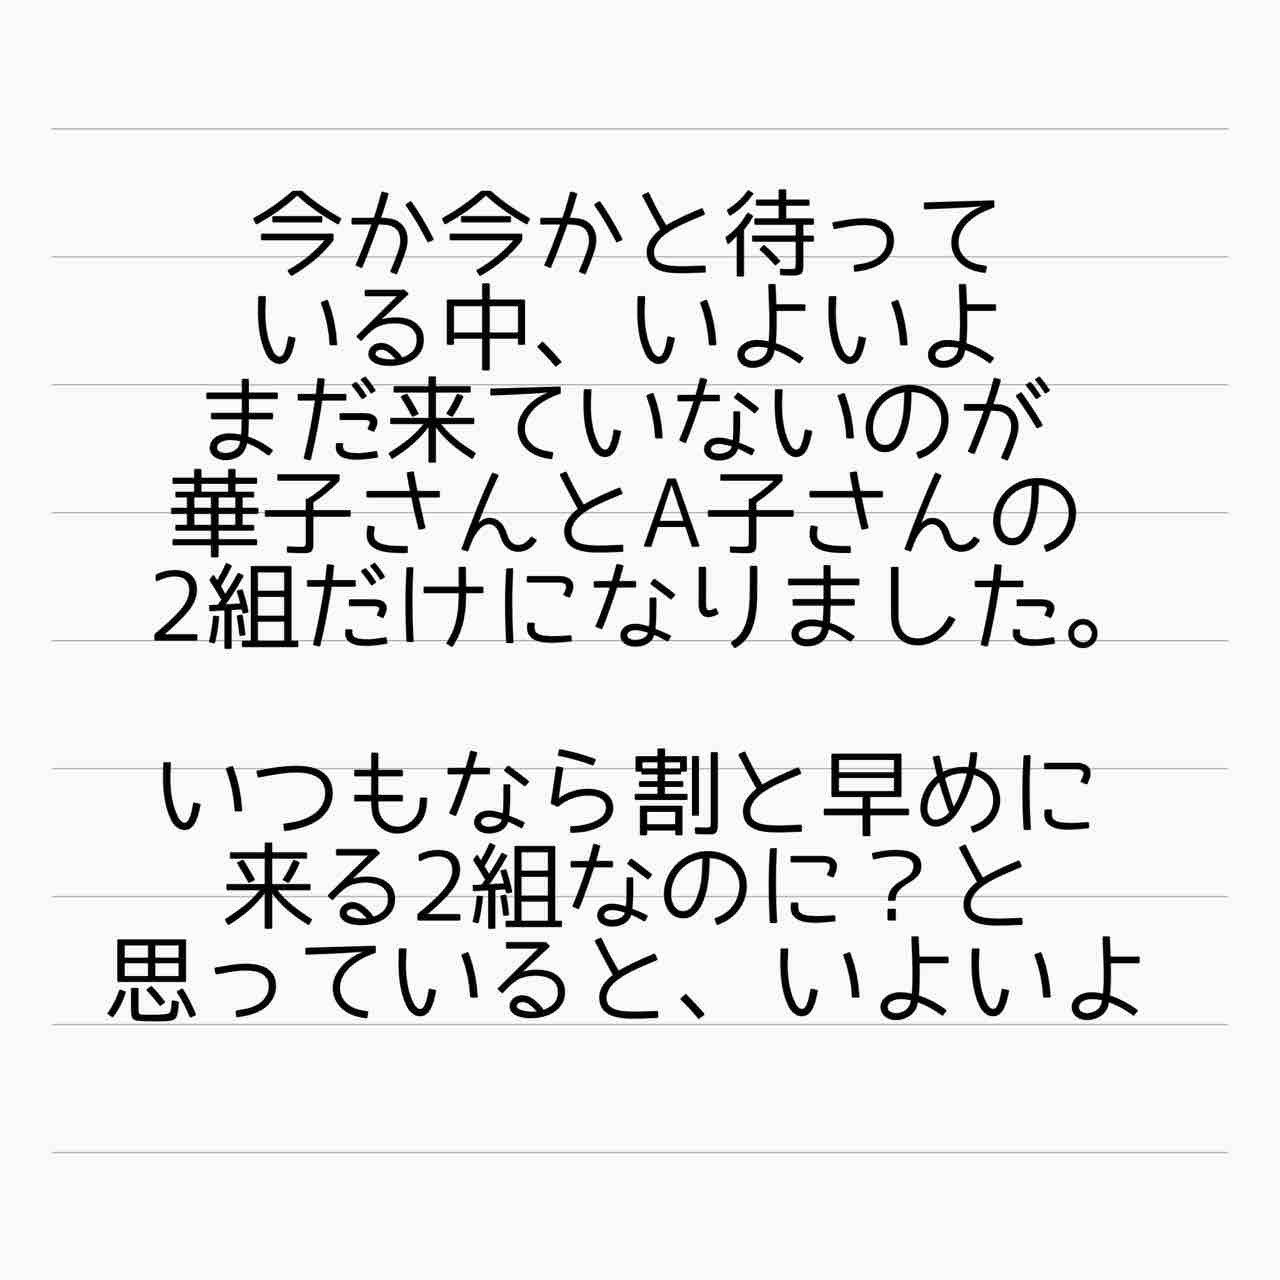 今か今かと待って
いる中、いよいよ
まだ来ていないのが
華子さんとA子さんの
2組だけになりました。
いつもなら割と早めに
来る2組なのに？と
思っていると、いよいよ